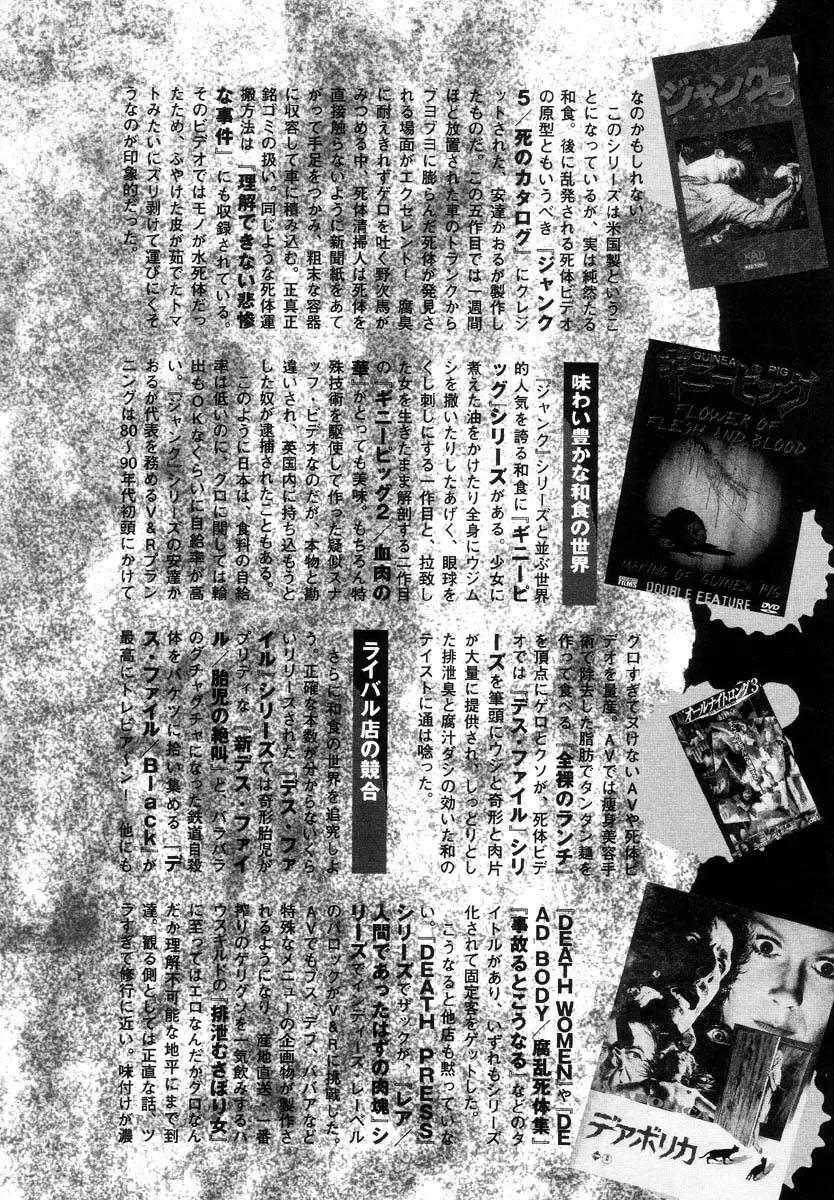 なのかもしれない。
　このシリーズは米国製というこ
とになっているが、実は純然たる
和食。後に乱発される死体ビデオ
の原型ともいうべき『ジャンク
5／死のカタログ』にクレジ
ットされた、安達かおるが製作し
たものだ。この五作目では一週間
ほど放置された車のトランクから
ブヨブヨに膨らんだ死体が発見さ
れる場面がエクセレント！　腐臭
に耐えきれずゲロを吐く野次馬が
みつめる中、死体清掃人は死体を
直接触らないように新聞紙をあて
がって手足をつかみ、粗末な容器
に収容して車に積み込む。正真正
銘ゴミの扱い。同じような死体運
搬方法は『理解できない悲惨
な事件』にも収録されている。
そのビデオではモノが水死体だっ
たため、ふやけた皮が茹でたトマ
トみたいにズリ剥けて運びにくそ
うなのが印象的だった。
味わい豊かな和食の世界
　『ジャンク』シリーズと並ぶ世界
的人気を誇る和食に『ギニーピ
ッグ』シリーズがある。少女に
煮えた油をかけたり全身にウジム
シを撒いたりしたあげく、眼球を
くし刺しにする一作目と、拉致し
た女を生きたまま解剖する二作目
の『ギニーピッグ2／血肉の
華』がとっても美味。もちろん特
殊技術を駆使して作った疑似スナ
ッフ・ビデオなのだが、本物と勘
違いされ、英国内に持ち込もうと
した奴が逮捕されたこともある。
　このように日本は、食料の自給
率は低いのに、グロに関しては輸
出もOKなくらいに自給率が高
い。『ジャンク』シリーズの安達か
おるが代表を務めるV&Rプラン
ニングは80〜90年代初頭にかけて
グロすぎてヌけないAVや死体ビ
デオを量産。AVでは痩身美容手
術で除去した脂肪でタンタン麺を
作って食べる『全裸のランチ』
を頂点にゲロとクソが、死体ビデ
オでは『デス・ファイル』シリ
ーズを筆頭にウジと奇形と肉片
が大量に提供され、しっとりとし
た排泄臭と腐汁ダシの効いた和の
テイストに通は唸った。
ライバル店の競合
　さらに和食の世界を追究しよ
う。正確な本数が分からないくら
いリリースされた『デス・ファ
イル』シリーズでは奇形胎児が
プリティな『新デス・ファイ
ル／胎児の絶叫』と、バラバラ
のグチャグチャになった鉄道自殺
体をバケツに拾い集める『デ
ス・ファイル／Black』が
最高にトレビア〜ン！　他にも
『DEATH WOMEN』や『DE
AD BODY／腐乱死体集』
『事故るとこうなる』などのタ
イトルがあり、いずれもシリーズ
化されて固定客をゲットした。
　こうなると他店も黙っていな
い。『DEATH PRESS』
シリーズでザックが、『レア／
人間であったはずの肉塊』シ
リーズでインディーズ・レーベル
のバロックがV&Rに挑戦した。
AVでもブス、デブ、ババアなど
特殊なメニューの企画物が製作さ
れるようになり、産地直送・一番
搾りのゲリグソを一気飲みするバ
ウスキルドの『排泄むさぼり女』
に至ってはエロなんだかグロなん
だか理解不可能な地平にまで到
達。観る側としては正直な話、ツ
ラすぎて修行に近い。味付けが濃
ジャンク5
GUINEA PIG
ギニーピッグ
FLOWER OF
FLESH AND BLOOD
MAKING OF GUINEA PIG
DOUBLE FEATURE
DVD
オールナイトロング3
デアボリカ